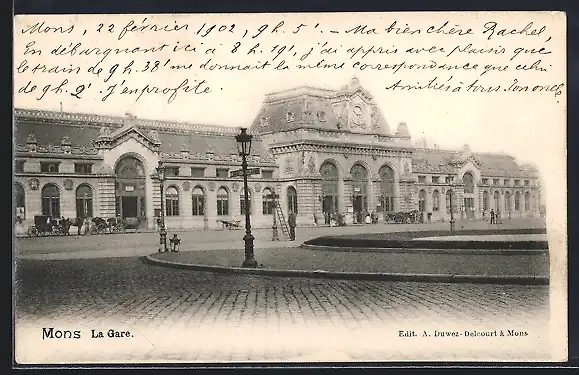 Mons, 22 février 1902, 9h. 5'. – Ma bien chère Rachel,
En débarquant ici à 8 h. 19', j'ai appris avec plaisir que
le train de 9h. 38' me donnait la même correspondance que celui
de 9h. 2'. J'en profite.
Amitiés à tous. Ton oncle
Mons La Gare.
Edit. A. Duwez-Delcourt à Mons